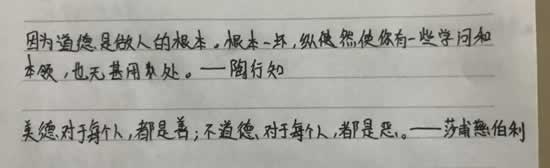 因为道德是做人的根本。根本一坏,纵使然使你有一些学问和
本领,也无甚用处。——陶行知
美德对于每个人,都是善;不道德、对于每个人,都是恶。——莎甫慈伯利